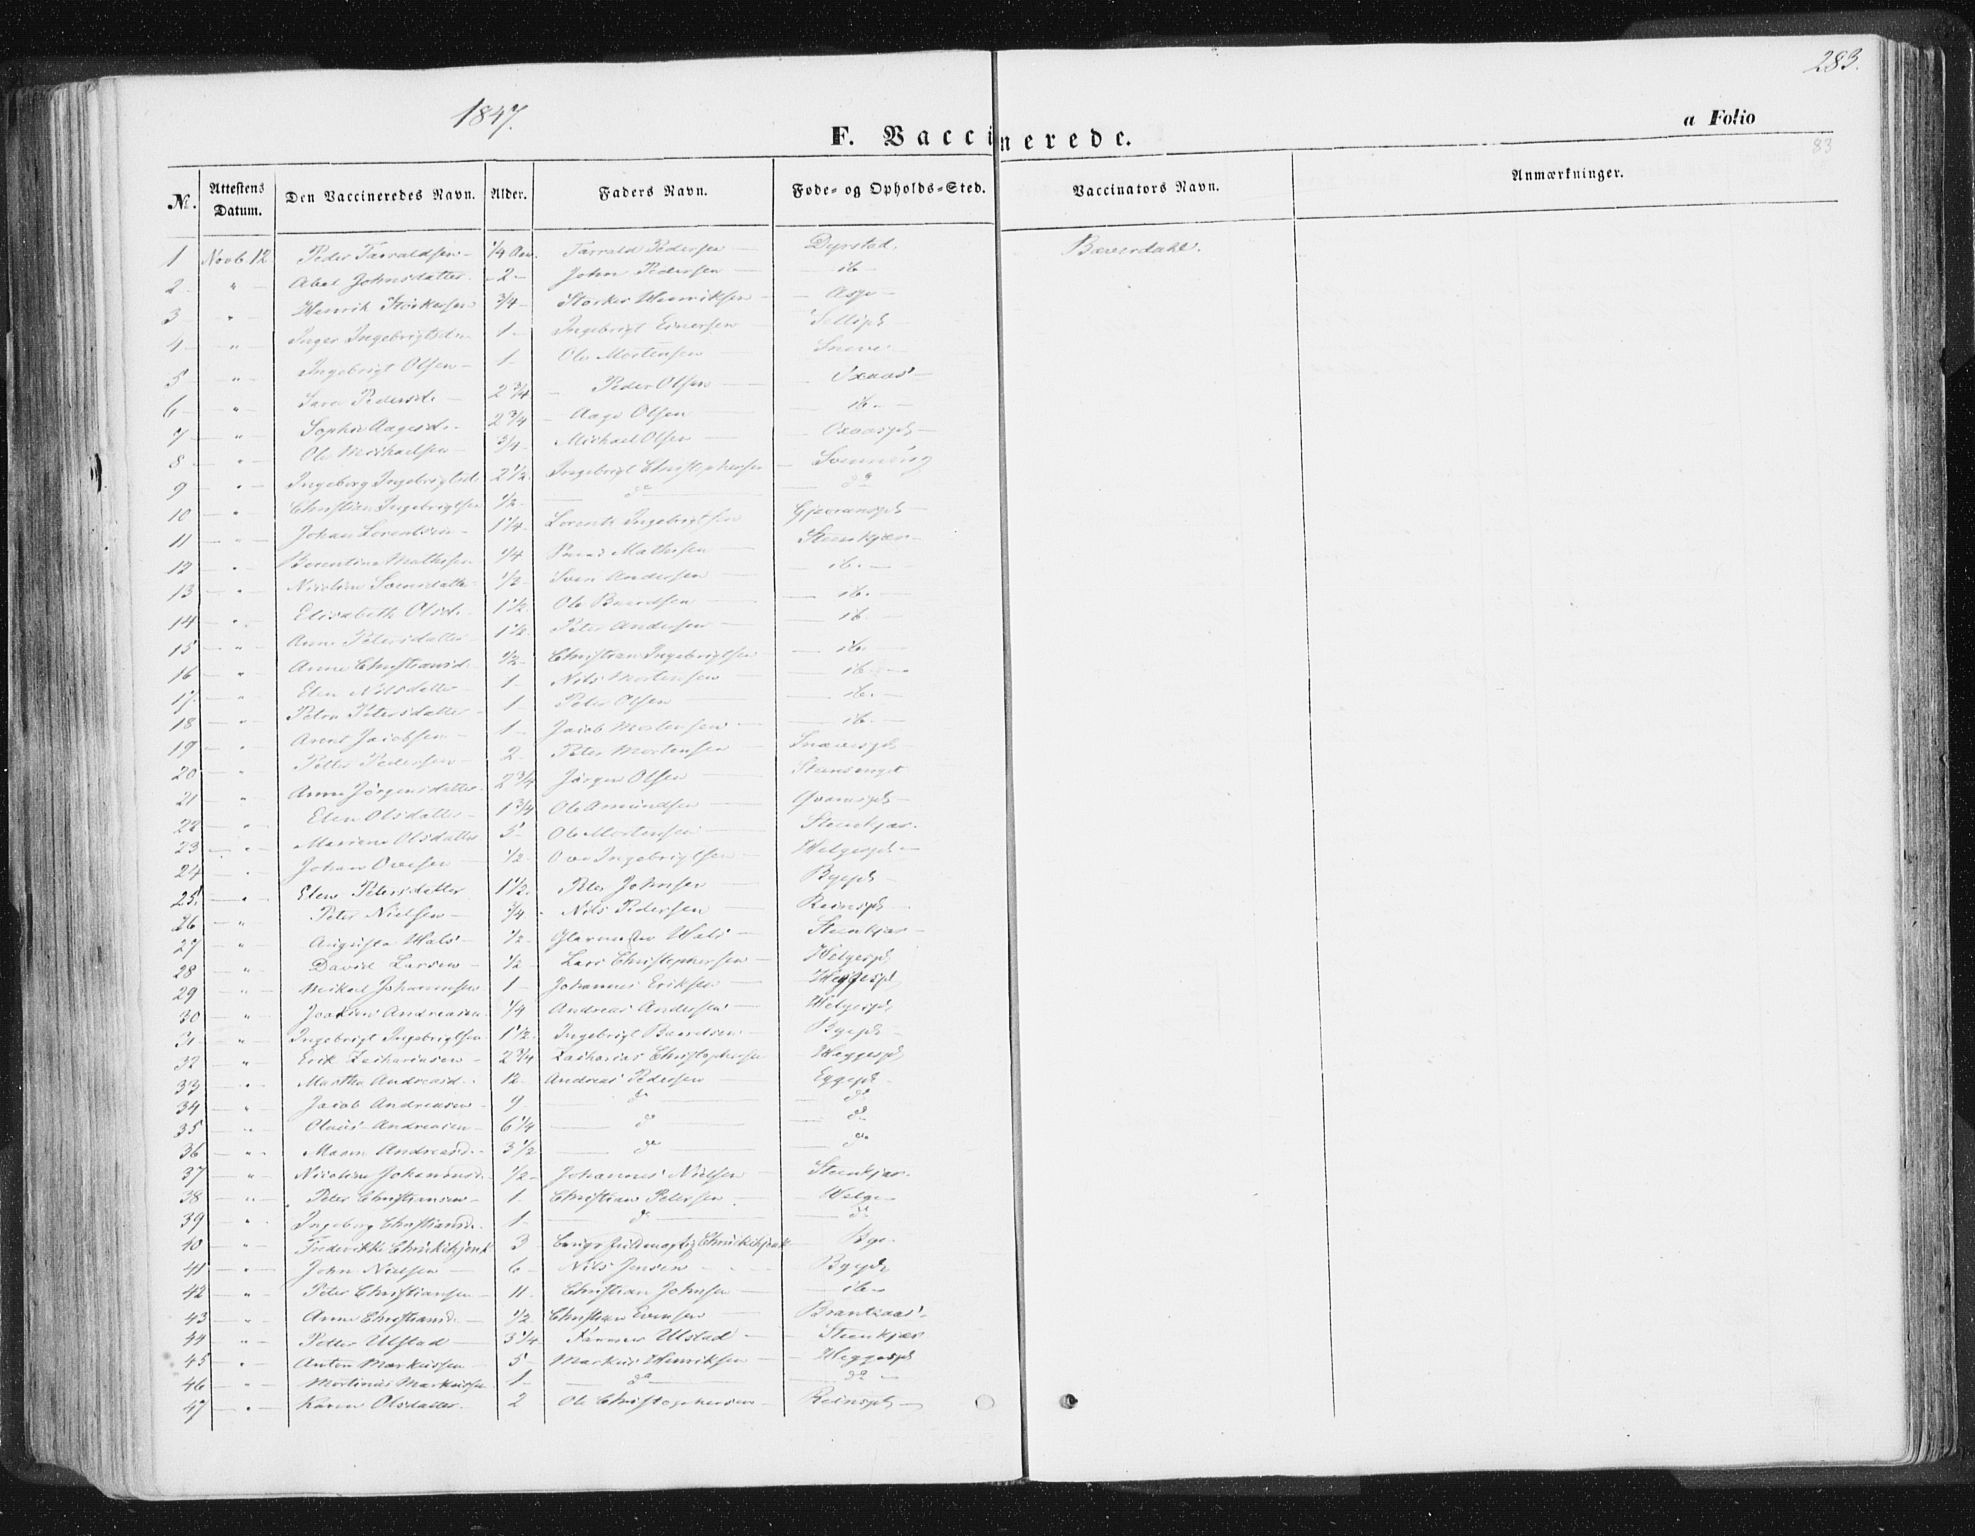 283.
1847.
a Folio
F. Vaccinerede.
83
No. Attestens Datum. Den Vaccineredes Navn. Alder. Faders Navn. Føde- og Opholds-Sted. Vaccinators Navn. Anmærkninger.
1 Novb. 12 Peder Tarraldsen 1/4 Aar. Tarrald Pedersen Dyrstad. Bæverdahl.
2 " Abel Johnsdatter 2 John Pedersen ib
3 " Henrik Storkersen 3/4 Storker Henriksen Asp
4 " Inger Ingebrigtsd. 1 Ingebrigt Einersen
5 " Ingebrigt Olsen 1 Ole Mortensen
6 " Sara Pedersd. 2 3/4 Peder Olsen Oxaas
7 " Sophie Aagesd. 2 3/4 Aage Olsen ib.
8 " Ole Michaelsen 3/4 Michael Olsen Oxaaspl
9 " Ingeborg Ingebrigtsd. 2 1/2 Ingebrigt Christophersen
10 " Christian Ingebrigtsen 1/2 do do
11 " Johan Lorentsen 1 1/4 Lorents Ingebrigtsen
12 " Berentine Mathisen 1/4 Mathisen Steenkjær
13 " Nicoline Svensdatter 1/2 Sven Andersen ib.
14 " Elisabeth Olsd. 1 1/2 Ole Baardsen ib.
15 " Anne Petersdatter 1 1/2 Peter Andersen ib.
16 " Anne Christiansd. 1/2 Christian Ingebrigtsen ib.
17 " Elen Nilsdatter 1 Nils Mortensen ib.
18 " Petra Petersdatter 1 Peter Olsen ib.
19 " Arent Jacobsen 1 Jacob Mortensen ib.
20 " Petter Pedersen 2 Peter Mortensen
21 " Anne Jörgensdatter 2 3/4 Jörgen Olsen
22 " Elen Olsdatter 1 3/4 Ole Amundsen
23 " Mariene Olsdatter 5 Ole Mortensen Steenkjær.
24 " Johan Ovesen 1/2 Ove Ingebrigtsen Helgespl
25. " Elen Petersdatter 1 1/2 Peter Johnsen Byepl
26 " Peter Nielsen 3/4 Nils Pedersen Reinspl
27 " Augusta Wals 1/2 Glarmester Wals Steenkjær
28 " David Larsen 1/2 Lars Christophersen Helgespl
29 " Mikal Johannesen 1 Johannes Eriksen Heggespl
30 " Joakim Andreasen 1/4 Andreas Andersen Helgespl
31 " Ingebrigt Ingebrigtsen 1 1/2 Ingebrigt Baardsen Byepl
32 " Erik Zachariasen 2 3/4 Zacharias Christophersen Heggespl
33 " Martha Andreasd. 12 Andreas Pedersen Eggepl
34 " Jacob Andreasen 9 do do
35 " Olaus Andreasen 6 1/4 do do
36 " Maren Andreasd. 3 1/2 do do
37 " Nicoline Johannesd. 1/2 Johannes Nielsen Steenkjær.
38 " Peter Christiansen 1 Christian Petersen Helge
39 " Ingeborg Christiansd. 1 do do
40 " Frederikke 3 Bye.
41 " John Nielsen 6 Nils Jensen Byepl
42 " Peter Christiansen 11 Christian Johnsen ib
43 " Anne Christiansd. 1/2 Christian Evensen Brantzaas
44 " Petter Ulstad 3 1/4 Ulstad Steenkjær
45 " Anton Markussen 5 Markus Henriksen Heggespl
46 " Mortinus Markussen 1 do do
47 " Karen Olsdatter 2 Ole Christophersen Reinspl